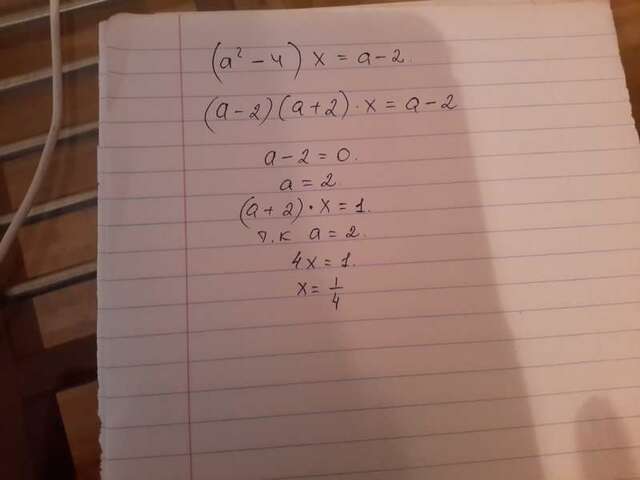 (a² - 4) x = a - 2.
(a - 2)(a + 2) · x = a - 2
a - 2 = 0.
a = 2.
(a + 2) · x = 1.
т.к a = 2.
4x = 1.
x = 1/4